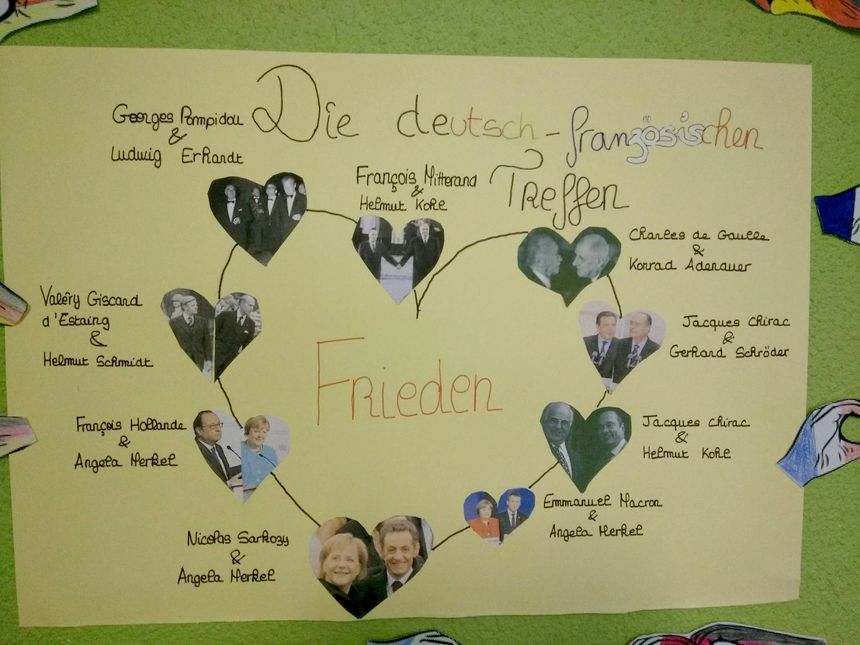 Die deutsch-französischen
Treffen
Georges Pompidou
&
Ludwig Erhardt
François Mitterand
&
Helmut Kohl
Charles de Gaulle
&
Konrad Adenauer
Valéry Giscard
d'Estaing
&
Helmut Schmidt
Jacques Chirac
&
Gerhard Schröder
Frieden
François Hollande
&
Angela Merkel
Jacques Chirac
&
Helmut Kohl
Emmanuel Macron
&
Angela Merkel
Nicolas Sarkozy
&
Angela Merkel